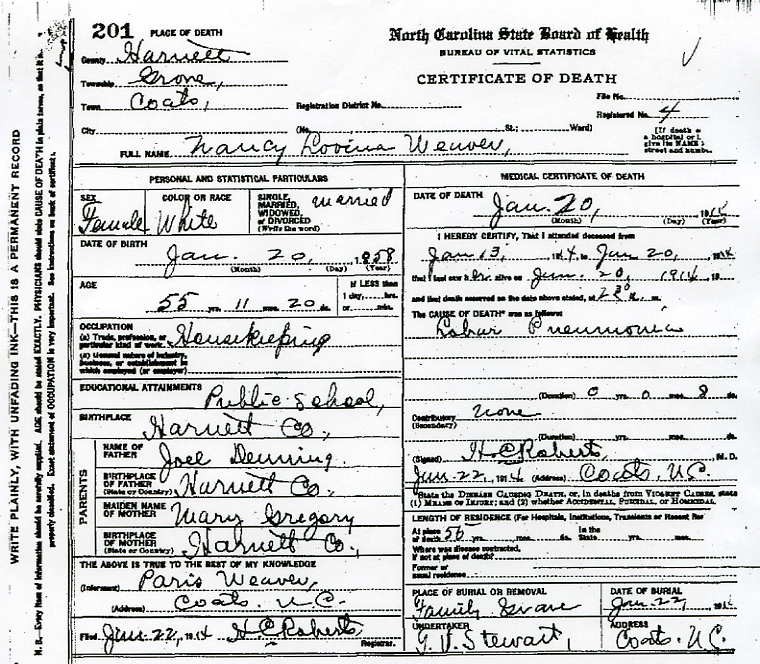 201 PLACE OF DEATH
North Carolina State Board of Health
BUREAU OF VITAL STATISTICS
CERTIFICATE OF DEATH
County Harnett
Township Grove,
Town Coats,
Registration District No.
File No.
Registered No. 4
City (No. St.; Ward)
[If death o
a hospital or i
give its NAME
street and numbe.
FULL NAME Nancy Lovina Weaver,
PERSONAL AND STATISTICAL PARTICULARS
SEX Female
COLOR OR RACE White
SINGLE, MARRIED, WIDOWED, or DIVORCED (Write the word) Married
DATE OF BIRTH
Jan. 20, 1858
(Month) (Day) (Year)
AGE
55 yrs. 11 mos. 20 ds.
If LESS than
1 day,....hrs.
or....min.
OCCUPATION
(a) Trade, profession, or
particular kind of work. Housekeeping
(b) General nature of industry,
business, or establishment in
which employed (or employer)
EDUCATIONAL ATTAINMENTS
Public School,
BIRTHPLACE
Harnett Co,
PARENTS
NAME OF FATHER Joel Denning.
BIRTHPLACE OF FATHER (State or Country) Harnett Co,
MAIDEN NAME OF MOTHER Mary Gregory
BIRTHPLACE OF MOTHER (State or Country) Harnett Co,
THE ABOVE IS TRUE TO THE BEST OF MY KNOWLEDGE
(Informant) Paris Weaver,
(Address) Coats. N.C.
Filed Jan 22, 1914 H C Roberts
Registrar.
MEDICAL CERTIFICATE OF DEATH
DATE OF DEATH Jan. 20, 1914
(Month) (Day) (Year)
I HEREBY CERTIFY, That I attended deceased from
Jan 13, 1914 to Jan 20, 1914
that I last saw her alive on Jan. 20, 1914
and that death occurred on the date above stated, at 2 30 m.
The CAUSE OF DEATH* was as follows:
Lobar Pneumonia
(Duration) 0 yrs. 0 mos. 8 ds.
Contributory None
(Secondary)
(Duration) yrs. mos. ds.
(Signed) H. C Roberts, M. D.
Jan. 22, 1914 (Address) Coats, N.C.
State the DISEASE CAUSING DEATH, or, in deaths from VIOLENT CAUSES, state
(1) MEANS OF INJURY; and (2) whether ACCIDENTAL, SUICIDAL, or HOMICIDAL.
LENGTH OF RESIDENCE (For Hospitals, Institutions, Transients or Recent Res
At place of death 55 yrs. mos. ds. In the State yrs. mos.
Where was disease contracted,
if not at place of death?
Former or
usual residence
PLACE OF BURIAL OR REMOVAL
Family Grave
DATE OF BURIAL
Jan. 22, 1914
UNDERTAKER
G. V. Stewart,
ADDRESS
Coats. N.C.
WRITE PLAINLY, WITH UNFADING INK—THIS IS A PERMANENT RECORD
N. B.—Every item of information should be carefully supplied. AGE should be stated EXACTLY. PHYSICIANS should state CAUSE OF DEATH in plain terms, so that it is
properly classified. Exact statement of OCCUPATION is very important. See instructions on back of certificate.